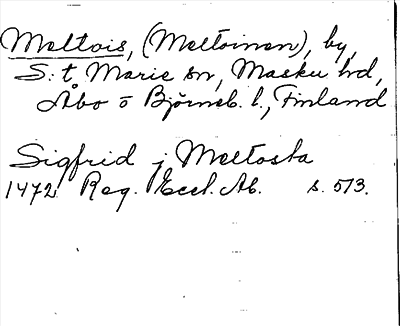 Meltois, (Meltoinen), by,
S:t Marie sn, Masku hd,
Åbo o Björneb. l., Finland
Sigfrid j Meltosta
1472 Reg. Eccl. Ab. s. 513.